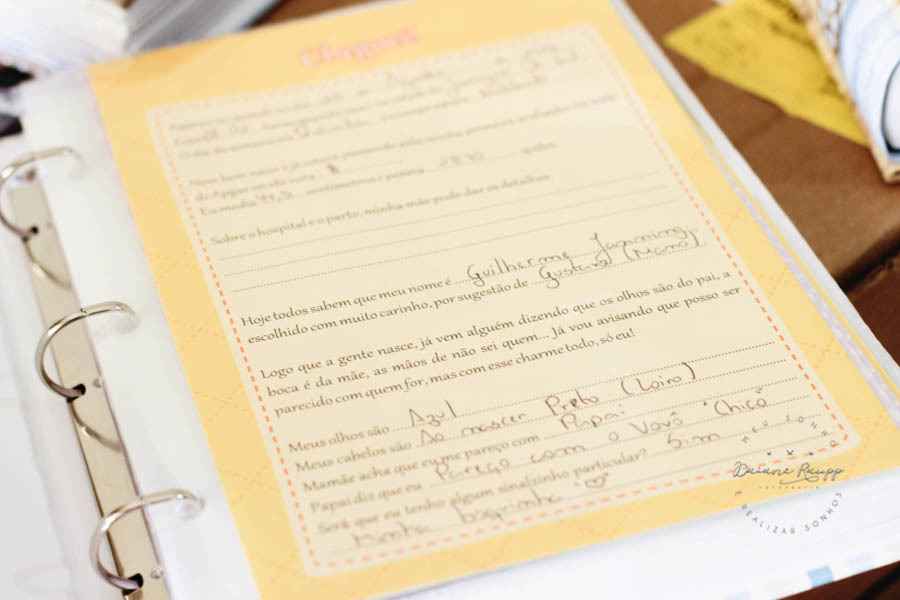 Cheguei!
O dia da semana era Quinta
Nem bem nasci e já estava passando pela minha primeira avaliação: no teste
de Apgar recebi nota 8
Eu media 44,5 centímetros e pesava 2810 quilos
Sobre o hospital e o parto, minha mãe pode dar os detalhes:
Hoje todos sabem que meu nome é Guilherme
escolhido com muito carinho, por sugestão de Gustavo (Mano).
Logo que a gente nasce, já vem alguém dizendo que os olhos são do pai, a
boca é da mãe, as mãos de não sei quem... Já vou avisando que posso ser
parecido com quem for, mas com esse charme todo, só eu!
Meus olhos são Azul
Meus cabelos são Ao nascer Preto (Loiro)
Mamãe acha que eu me pareço com Papai
Papai diz que eu Pareço com o Vovô "Chico"
Será que eu tenho algum sinalzinho particular? Sim
Minha
MEU SONHO
Daiane Raupp
FOTOGRAFIA
É REALIZAR SONHOS